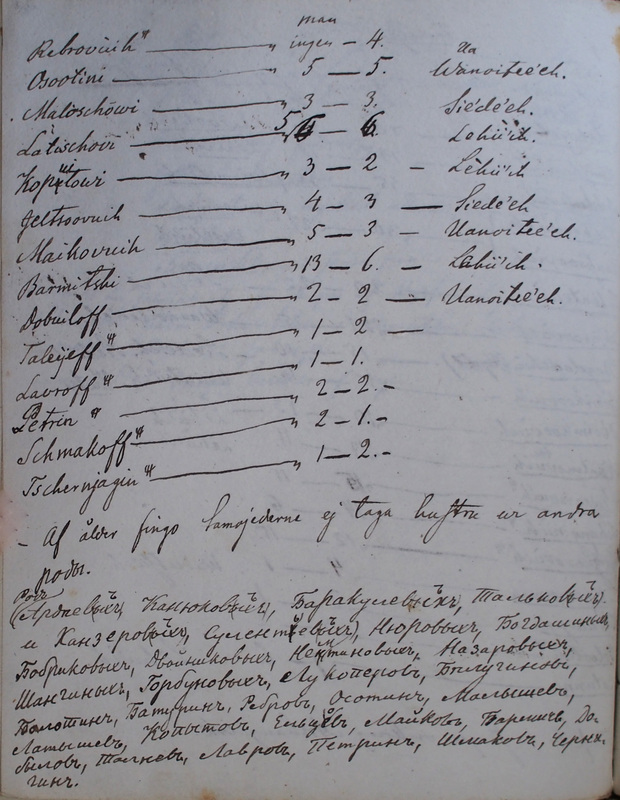 man
Rebrovuih " — „ ingen — 4.
Osotini — „ 5 — 5. Wanoitee'ch.
Maloschöwi — „ 3 — 3. Siede'ch.
Latischovi — „ 5 — 6. Lehü'it.
Kopütowi — „ 3 — 2 — Lehü'it
Jeltsoovuih — „ 4 — 3 — Siede'ch
Maihovuih — „ 5 — 3 — Uanoitee'ch.
Barmitski — „ 13 — 6. — Lehü'ch.
Dobuiloff — „ 2 — 2 — Uanoitee'ch.
Talejeff " — „ 1 — 2 —
Lavroff " — „ 1 — 1.
Petrin " — „ 2 — 2. -
Schmakoff " — „ 2 — 1. -
Tschernjagin " — „ 1 — 2. -
- Af ålder fingo Samojederne ej taga hustru ur andra
rodu.
Родъ
(Ардеевыхъ, Канюковыхъ, Баракулевыхъ, Тальковыхъ)
и Канзеровыхъ, Сулентьевыхъ, Нюровыхъ, Богдашиныхъ
Бобриковыхъ, Двойниковыхъ, Назаровыхъ,
Шангиныхъ, Горбуновыхъ, Лукоперовъ, Билугиновъ,
Болотинъ, Батуринъ, Ребровъ, Осотинъ, Малышевъ,
Латышевъ, Копытовъ, Ельцовъ, Майковъ, Бармичъ, До-
быловъ, Талѣевъ, Лавровъ, Петринъ, Шмаковъ, Черня-
гинъ.